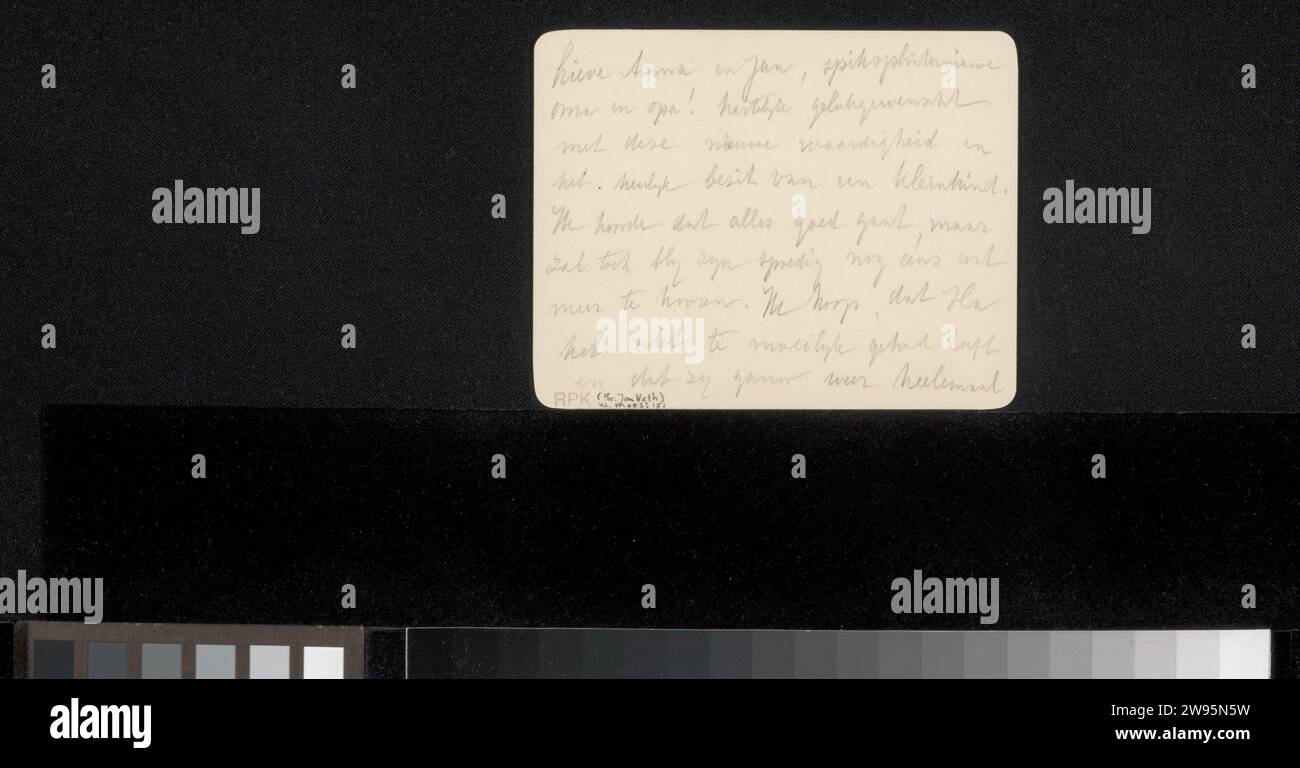 Lieve Anna en Jan, spiksplinternieuwe
oma en opa! hartelijk gelukgewenscht
met deze nieuwe waardigheid en
het heerlijk bezit van een kleinkind.
Ik hoorde dat alles goed gaat, maar
zal toch blij zijn spoedig nog eens wat
meer te hooren. Ik hoop, dat
het niet te moeilijk gehad heeft
en dat zij gauw weer heelemaal
RPK (Br. Jan Veth)
alamy
alamy
alamy
alamy
alamy
a
alamy
Image ID: 2W95N5W
www.alamy.com